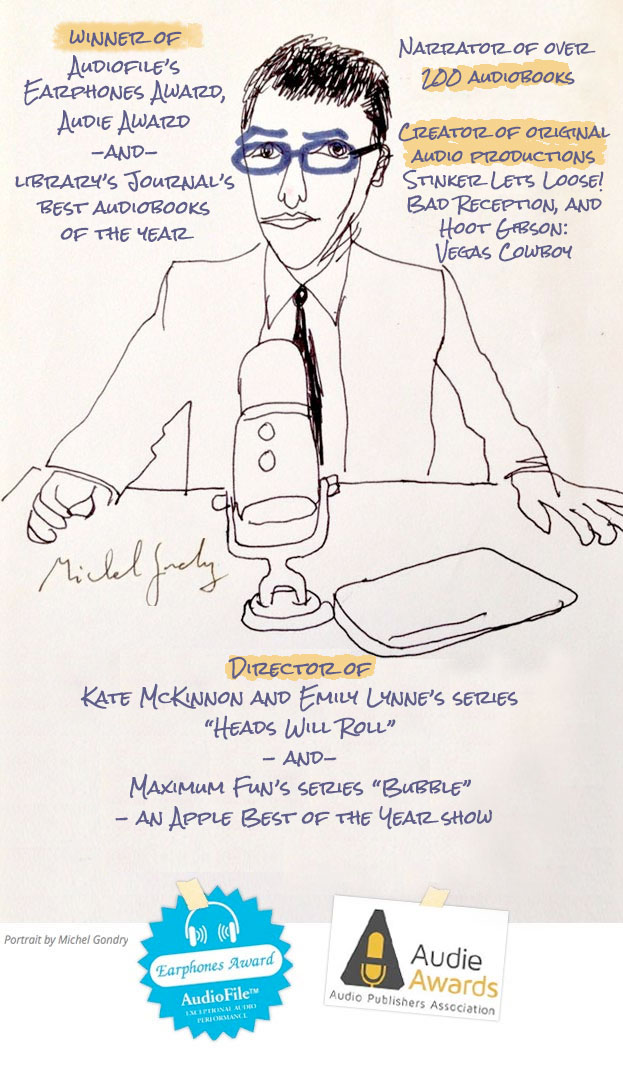 WINNER OF
AUDIOFILE'S
EARPHONES AWARD,
AUDIE AWARD
-AND-
LIBRARY'S JOURNAL'S
BEST AUDIOBOOKS
OF THE YEAR
NARRATOR OF OVER
200 AUDIOBOOKS
CREATOR OF ORIGINAL
AUDIO PRODUCTIONS
STINKER LETS LOOSE!
BAD RECEPTION, AND
HOOT GIBSON:
VEGAS COWBOY
Michel Gondry
DIRECTOR OF
KATE MCKINNON AND EMILY LYNNE'S SERIES
"HEADS WILL ROLL"
- AND-
MAXIMUM FUN'S SERIES "BUBBLE"
- AN APPLE BEST OF THE YEAR SHOW
Portrait by Michel Gondry
Earphones Award
AudioFile™
EXCEPTIONAL AUDIO
PERFORMANCE
Audie
Awards
Audio Publishers Association